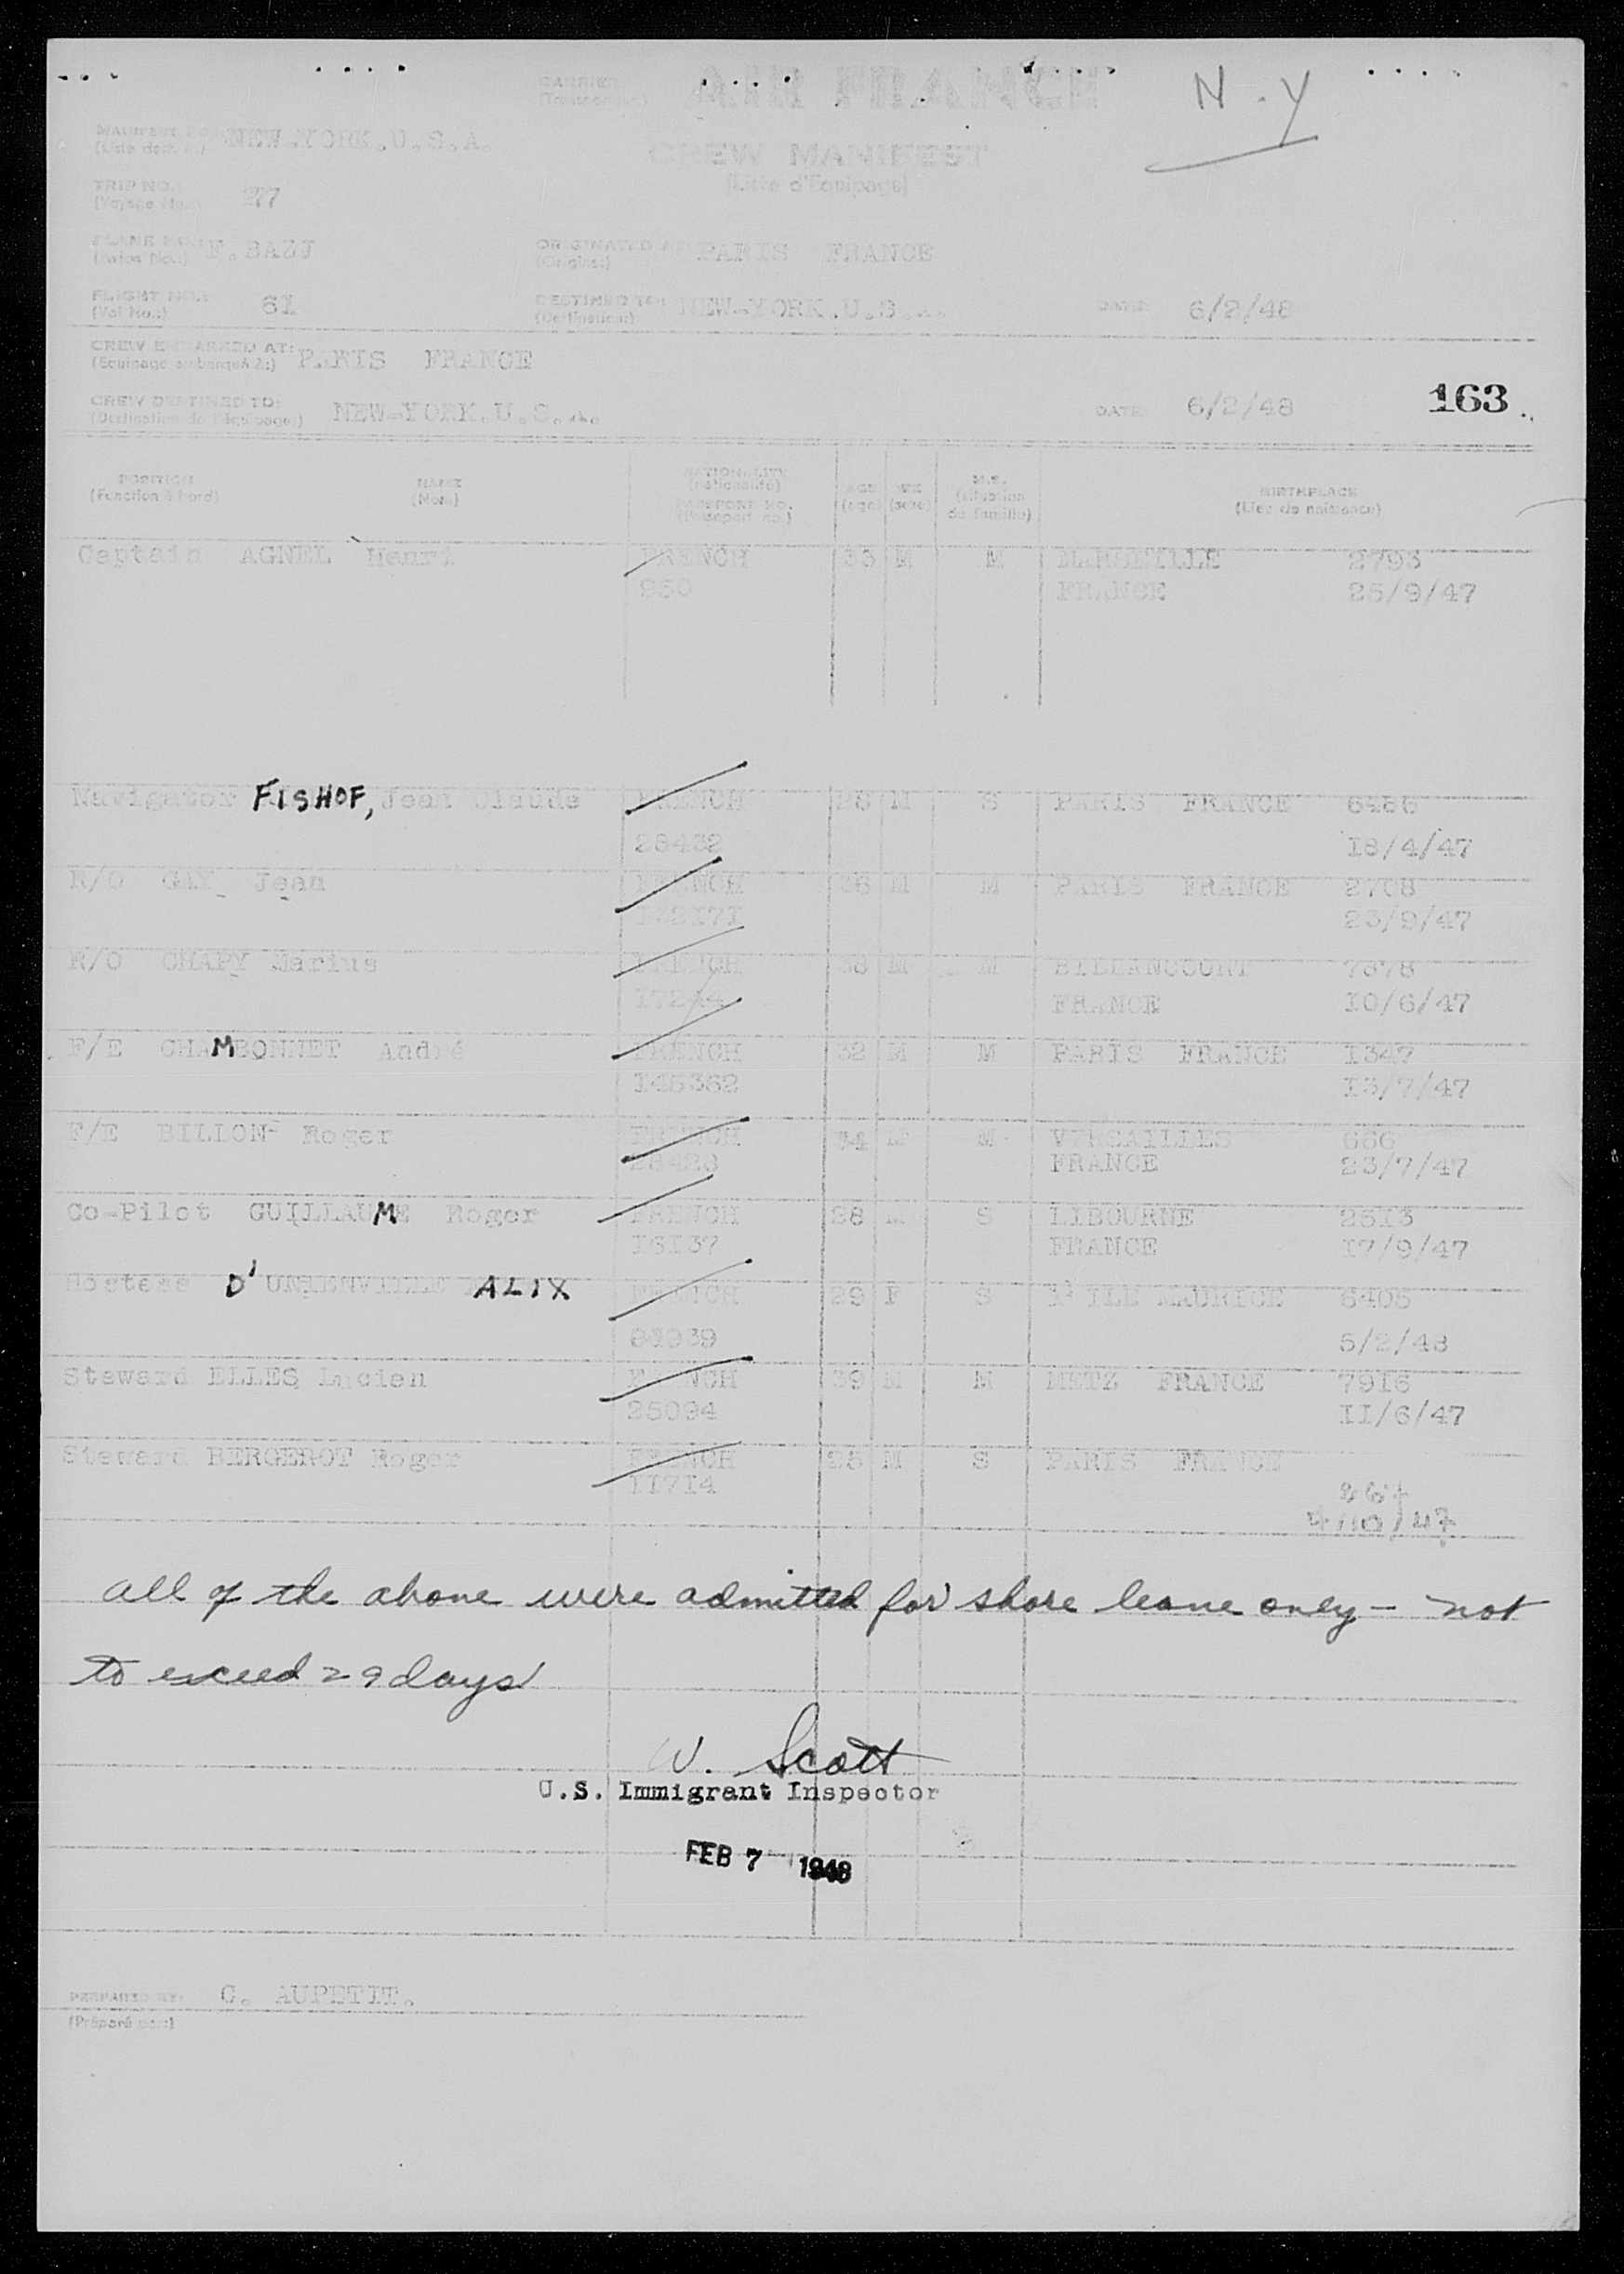 CARRIER: AIR FRANCE N.Y
(Transporteur)
NEW-YORK.U.S.A.
CREW MANIFEST
(Liste d'Equipage)
TRIP NO. 277
F.BAZJ
ORIGINATED PARIS FRANCE
(Origine:)
FLIGHT NO.: 61
(Vol No.:)
DESTINED TO: NEW-YORK.U.S.A. DATE 6/2/48
(Destination:)
CREW EMBARKED AT: PARIS FRANCE
(Equipage embarqué à:)
163
CREW DESTINED TO: NEW-YORK.U.S.A. DATE 6/2/48
(Destination de l'équipage:)
POSITION NAME NATIONALITY AGE SEX M.S. BIRTHPLACE
(Fonction à bord) (Nom) (nationalité) (age) (sexe) (situation de famille) (Lieu de naissance)
PASSPORT NO.
(Passeport no.)
Captain AGNEL Henri FRENCH 33 M M MARSEILLE 2793
950 FRANCE 25/9/47
Navigator FISHOF, Jean Claude FRENCH 28 M S PARIS FRANCE 6486
28432 18/4/47
R/O GAY Jean FRENCH 36 M M PARIS FRANCE 2708
23/9/47
R/O CHAPY Marius FRENCH 38 M M BILLANCOURT 7378
17244 FRANCE 10/6/47
F/E CHAMBONNET André FRENCH 32 M M PARIS FRANCE 1347
145362 13/7/47
F/E BILLON Roger FRENCH 34 M M VERSAILLES 666
28428 FRANCE 23/7/47
Co-Pilot GUILLAUME Roger FRENCH 28 M S LIBOURNE 2513
16137 FRANCE 17/9/47
Hostess D'UNIENVILLE ALIX FRENCH 29 F S L'ILE MAURICE 6405
81939 5/2/48
Steward ELLES Lucien FRENCH 39 M M METZ FRANCE 7916
25094 11/6/47
Steward BERGEROT Roger FRENCH 25 M S PARIS FRANCE
11714
4/10/47
All of the above were admitted for shore leave only - not
to exceed 29 days
W. Scott
U.S. Immigrant Inspector
FEB 7 1948
PREPARED BY: C. AUPETIT.
(Préparé par:)